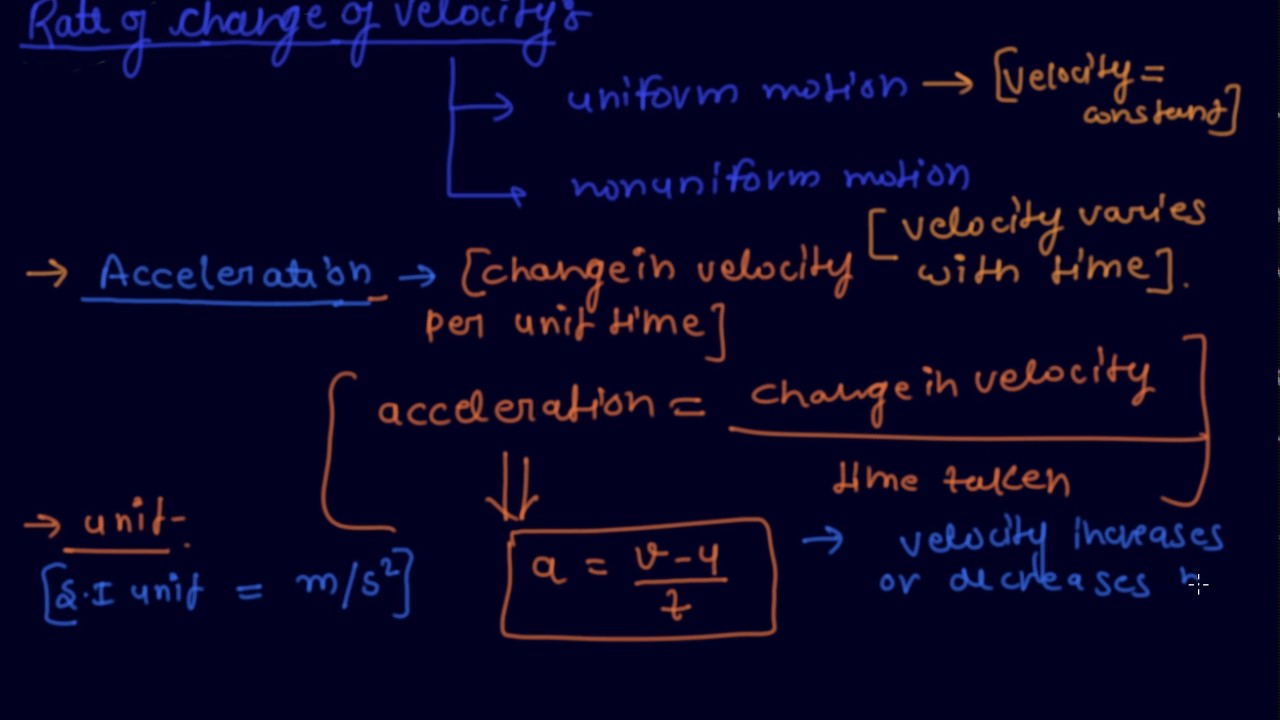 Rate of change of velocity:
uniform motion → [velocity =
constant]
nonuniform motion
[velocity varies
with time].
→ Acceleration → [change in velocity
per unit time]
acceleration = change in velocity
time taken
→ unit-
[S.I unit = m/s²]
a = v-u
t
→ velocity increases
or decreases